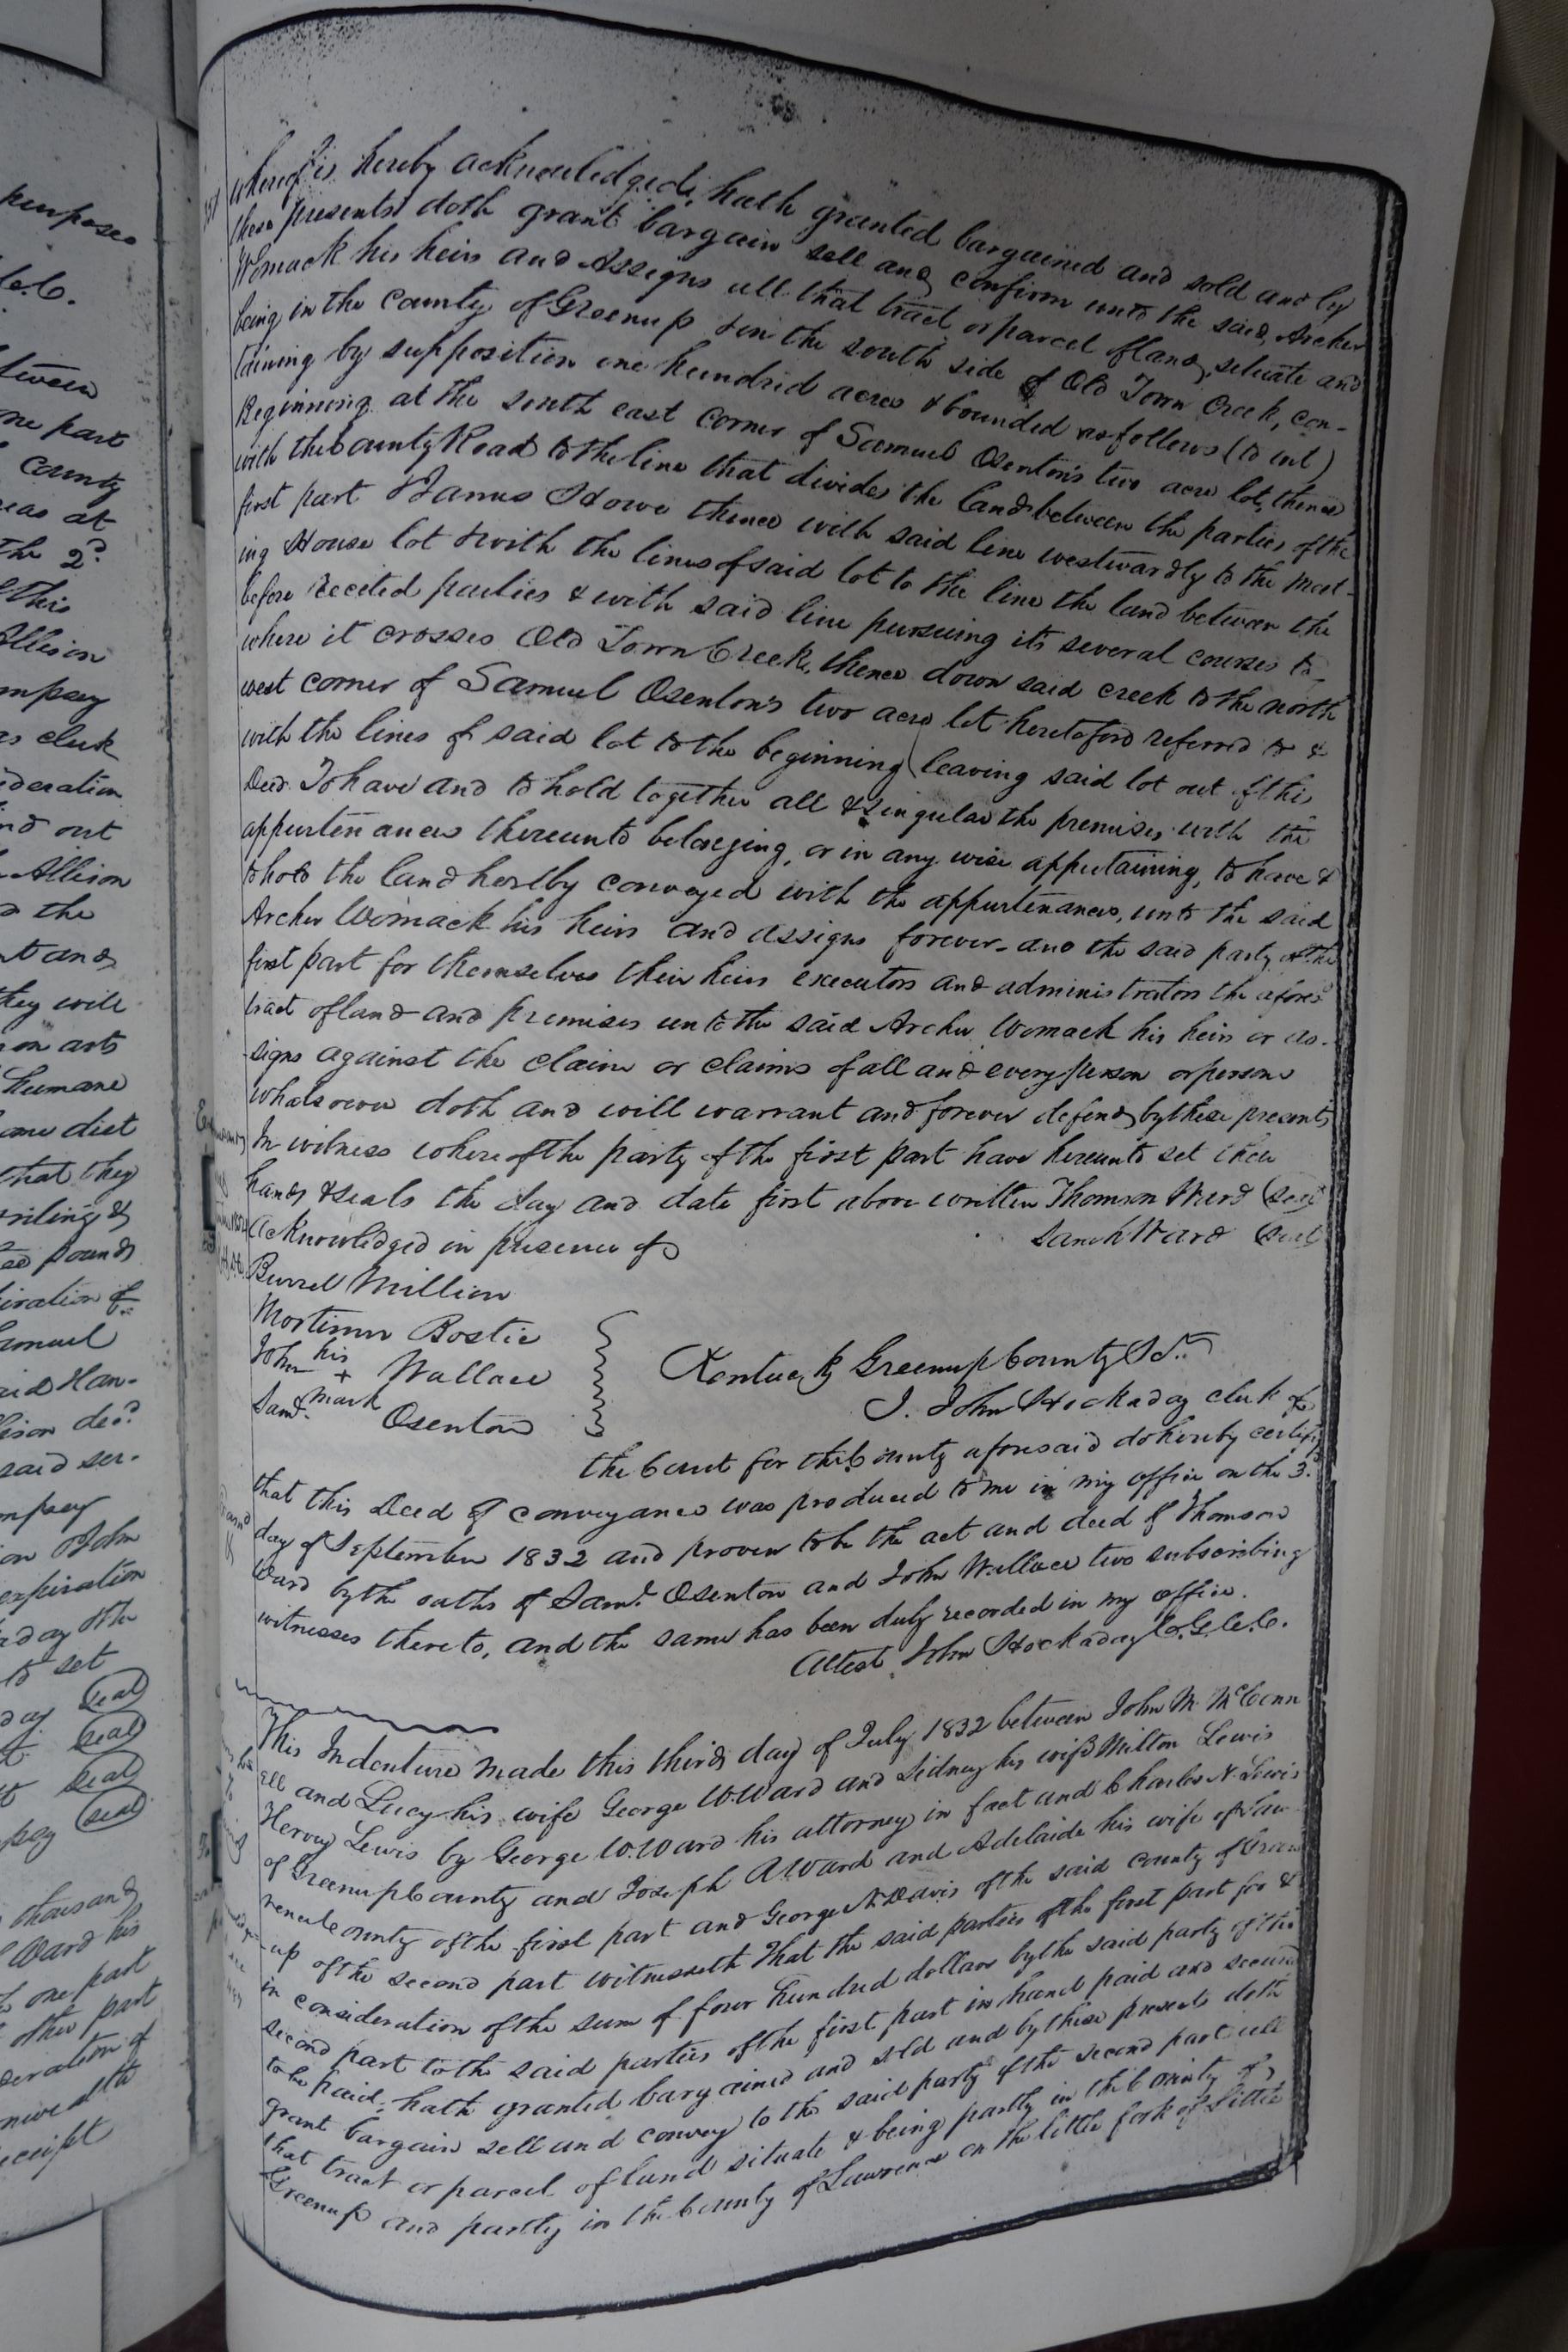 whereof is hereby acknowledged, hath granted bargained and sold and by
these presents doth grant bargain sell and confirm unto the said Archer
Womack his heirs and Assigns all that tract or parcel of land, situate and
being in the County of Greenup & in the south side of Old Town Creek, con-
taining by supposition one hundrid acres & bounded as follows (to wit)
Beginning at the south east corner of Samuel Osenton's two acre lot, thence
with the County Road to the line that divides the land between the parties of the
first part & James Howe thence with said line westwardly to the Meet-
ing House lot & with the lines of said lot to the line the land between the
before recited parties & with said line pursuing its several courses to
where it crosses Old Town Creek, thence down said creek to the north
west corner of Samuel Osenton's two acre lot heretofore referred to &
with the lines of said lot to the beginning (leaving said lot out of this
Deed. To have and to hold together all & singular the premises with the
appurtenances thereunto belonging, or in any wise appertaining, to have &
to hold the land hereby conveyed with the appurtenances, unto the said
Archer Womack his heirs and assigns forever - and the said party of the
first part for themselves their heirs executors and administrators the afores
tract of land and premises unto the said Archer Womack his heirs or as-
signs against the claim or claims of all and every person or persons
whatsoever doth and will warrant and forever defend by these presents
In witness whereof the party of the first part have hereunto set their
hands & seals the day and date first above written Thomson Ward (seal
Sarah Ward (seal
Acknowledged in presence of
Burrel Million
Mortimer Bostic
John his + mark Wallace
Saml. Osenton
Kentucky Greenup County Sct.
I. John Hockaday clerk of
the Court for the County aforesaid do hereby certify
that this Deed of conveyance was produced to me in my office on the 3d
day of September 1832 and proven to be the act and deed of Thomson
Ward by the oaths of Saml. Osenton and John Wallace two subscribing
witnesses thereto, and the same has been duly recorded in my office.
Attest John Hockaday C.G.C.C.
This Indenture made this third day of July 1832 between John M. McConn
ell and Lucy his wife George W. Ward and Sidney his wife Milton Lewis
Hervey Lewis by George W. Ward his attorney in fact and Charles N. Lewis
of Greenup County and Joseph A Ward and Adelaide his wife of Law
rence County of the first part and George N. Davis of the said county of Green
up of the second part witnesseth That the said parties of the first part for &
in consideration of the sum of four hundred dollars by the said party of the
second part to the said parties of the first part in hand paid and secured
to be paid, hath granted bargained and sold and by these presents doth
grant bargain sell and convey to the said party of the second part all
that tract or parcel of land situate & being partly in the County of
Greenup and partly in the County of Lawrence on the little fork of Little